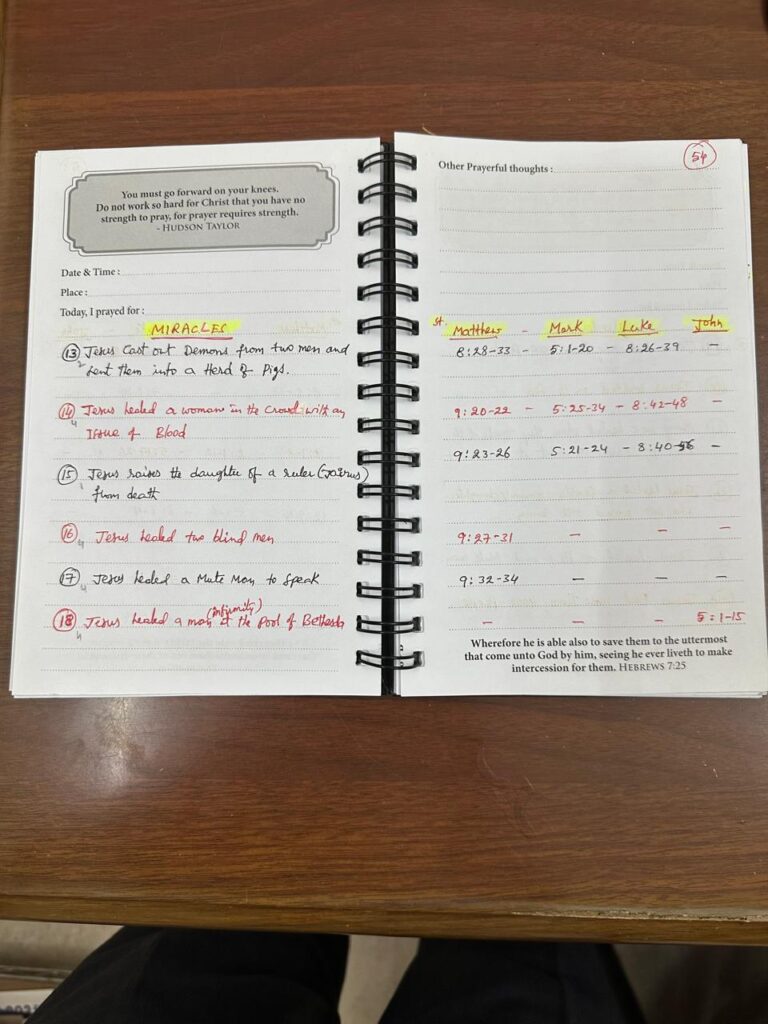 You must go forward on your knees.
Do not work so hard for Christ that you have no
strength to pray, for prayer requires strength.
- HUDSON TAYLOR
Date & Time :
Place :
Today, I prayed for :
MIRACLES
(13) Jesus Cast out Demons from two men and
Sent them into a Herd of Pigs.
(14) Jesus healed a woman in the Crowd with an
Issue of Blood
(15) Jesus raises the daughter of a ruler (Jairus)
from death
(16) Jesus healed two blind men
(17) Jesus healed a Mute Man to Speak
(infirmity)
(18) Jesus healed a man at the Pool of Bethesda
54
Other Prayerful thoughts :
St. Matthew - Mark Luke John
8:28-33 - 5:1-20 - 8:26-39 -
9:20-22 - 5:25-34 - 8:42-48 -
9:23-26 5:21-24 - 8:40-56 -
9:27-31 - - -
9:32-34 - - -
- - - 5:1-15
Wherefore he is able also to save them to the uttermost
that come unto God by him, seeing he ever liveth to make
intercession for them. HEBREWS 7:25